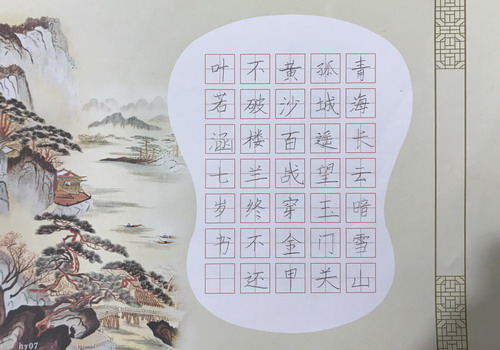 青海长云暗雪山
孤城遥望玉门关
黄沙百战穿金甲
不破楼兰终不还
叶若涵七岁书
hy07